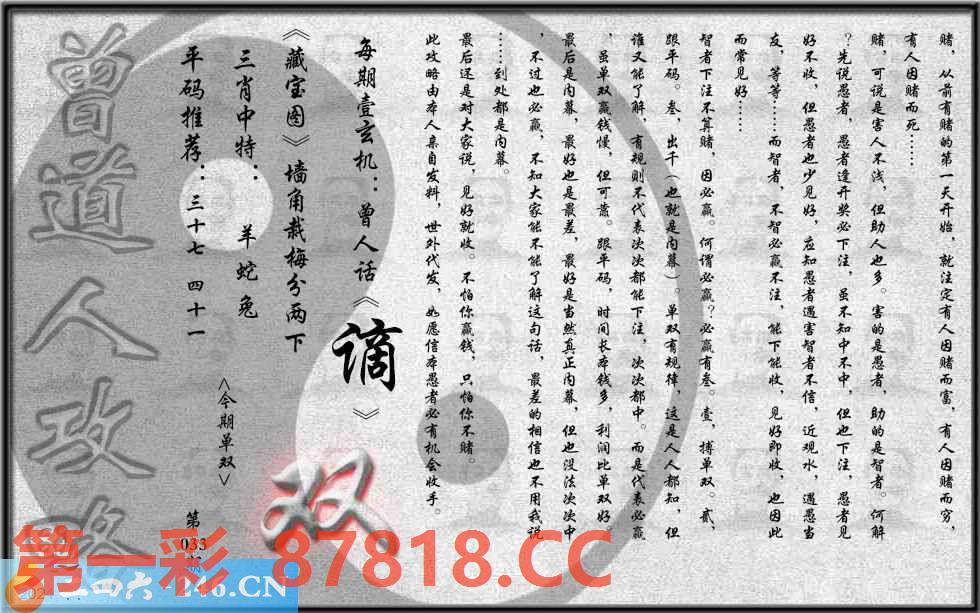 赌，从前有赌的第一天开始，就注定有人因赌而富，有人因赌而穷，
有人因赌而死……
赌，可说是害人不浅，但助人也多。害的是愚者，助的是智者。何解
？先说愚者，愚者逢开奖必下注，虽不知中不中，但也下注，愚者见
好不收，但愚者也少见好，应知愚者遇害智者不信，近观水，遇愚当
友，等等……而智者，不智必赢不注，能下能收，见好即收，也因此
而常见好……
智者下注不算赌，因必赢。何谓必赢？必赢有叁。壹，搏单双。贰，
跟平码。叁，出千（也就是内幕）。单双有规律，这是人人都知，但
谁又能了解，有规则不代表次次都能下注，次次都中。而是代表必赢
，虽单双赢钱慢，但可靠。跟平码，时间长本钱多，利润比单双好。
最后是内幕，最好也是最差，最好是当然真正内幕，但也没法次次中
，不过也必赢，不知大家能不能了解这句话，最差的相信也不用我说
……到处都是内幕。
最后还是对大家说，见好就收。不怕你赢钱，只怕你不赌。
此攻略由本人亲自发料，世外代发，如愿信本愚者必有机会收手。
每期壹玄机：曾人话《谪》
《藏宝图》墙角栽梅分两下
三肖中特：羊蛇兔
平码推荐：三十七 四十一
<今期单双>
双
第
033
期
曾道人攻略
第一彩 87818.CC
二四六 246.CN